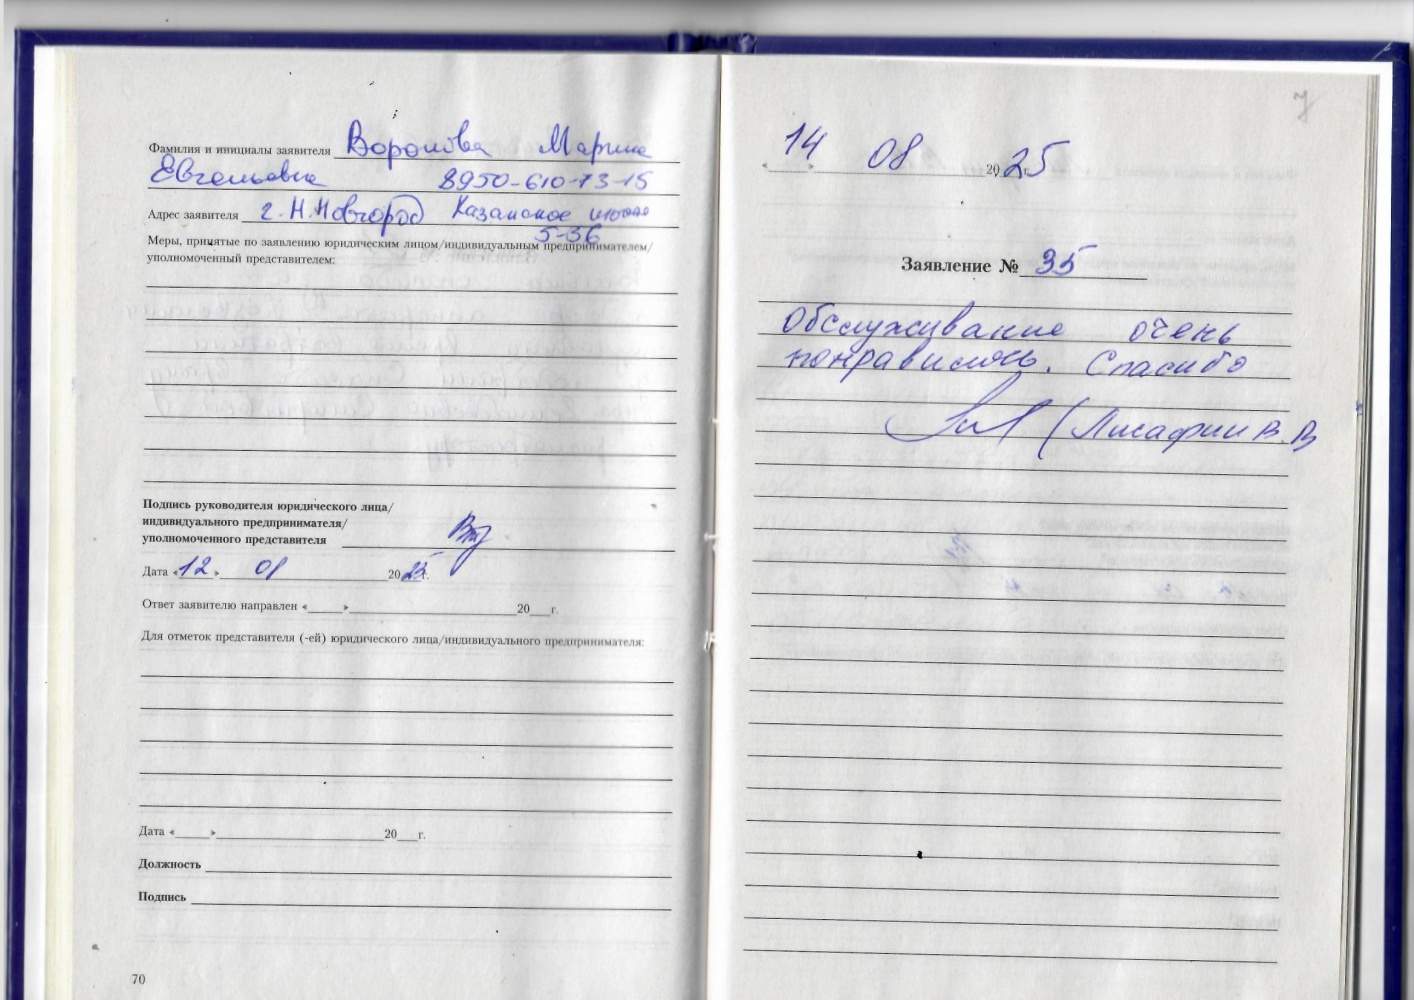 Фамилия и инициалы заявителя Воронова Марина
Евгеньевна 8950-610-73-15
Адрес заявителя г. Н.Новгород Казанское шоссе
5-36
Меры, принятые по заявлению юридическим лицом/индивидуальным предпринимателем/
уполномоченный представителем:
Подпись руководителя юридического лица/
индивидуального предпринимателя/
уполномоченного представителя
Дата «12» 08 2025г.
Ответ заявителю направлен «      »                20    г.
Для отметок представителя (-ей) юридического лица/индивидуального предпринимателя:
Дата «      »                20    г.
Должность
Подпись
70
7
«14» 08 2025г.
Заявление № 35
Обслуживание очень
понравилось. Спасибо
(Лисафин В.В